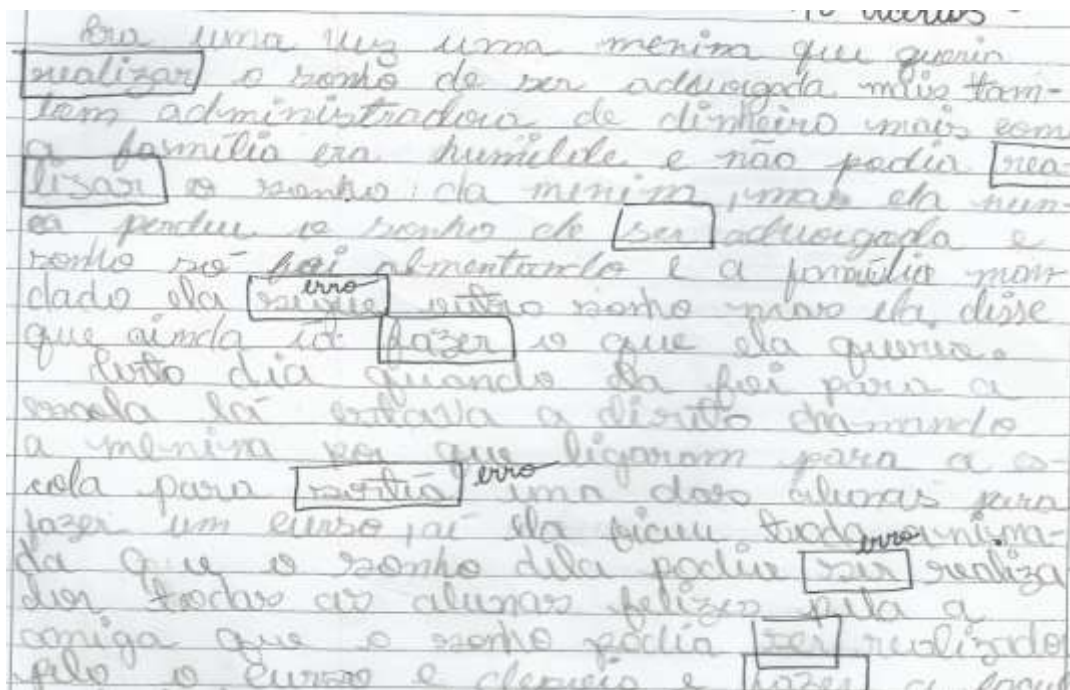 Era uma vez uma menina que queria
realizar o sonho de ser advorgada mais tam-
bem administradora de dinheiro mais com
a família era humilde e não podia rea-
lizar o sonho da menina, mas ela nun-
ca perdeu o sonho de ser advorgada e
sonho só foi almentando e a família
dado ela erro outro sonho mas ela disse
que ainda ia fazer o que ela queria.
Certo dia quando ela foi para a
escola lá estava a
a menina por que ligaram para a es-
cola para erro uma das alunas para
fazer um curso, aí ela ficou toda anima-
erro
da que o sonho dela podia ser realiza
dor todas as alunas felizes pela a
amiga que o sonho podia ser realizado
pelo o curso e depois e fazer a